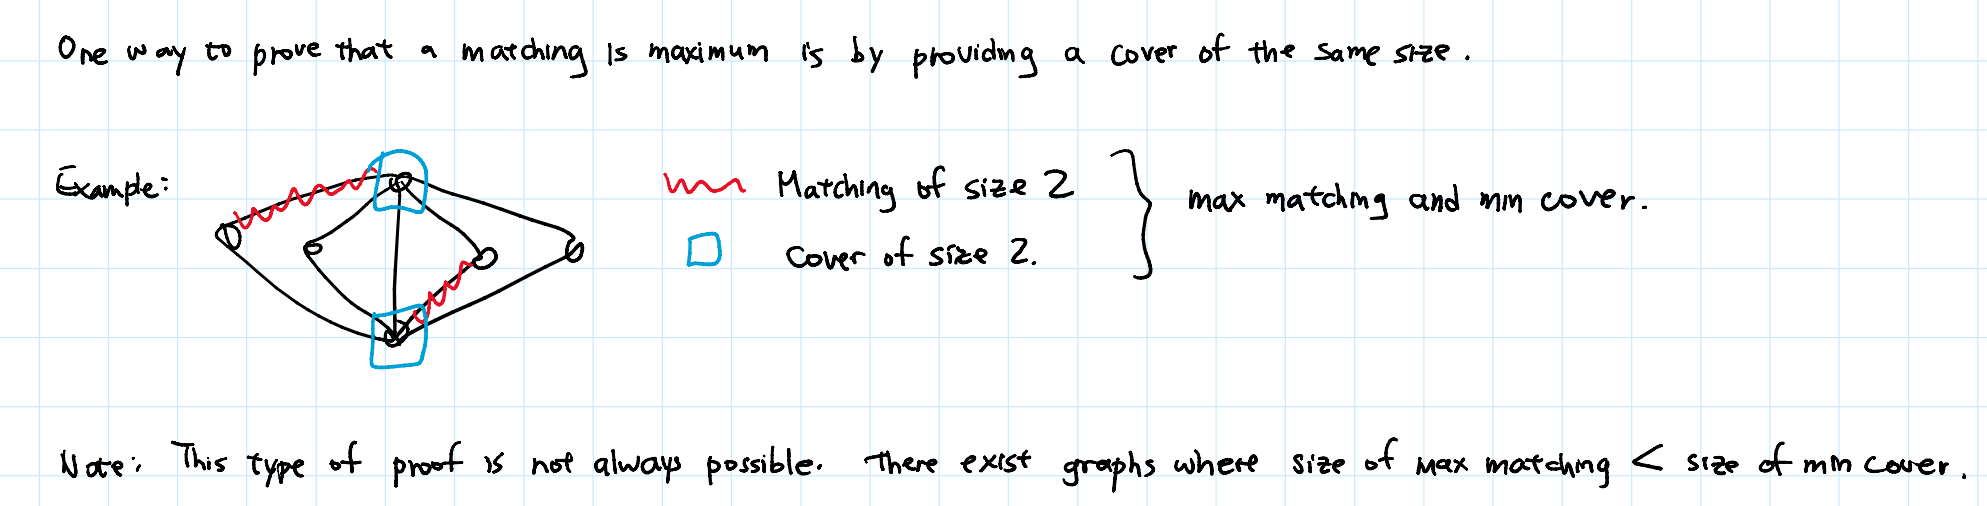 One way to prove that a matching is maximum is by providing a cover of the same size.
Example:
Matching of size 2
Cover of size 2.
max matching and min cover.
Note: This type of proof is not always possible. There exist graphs where size of max matching < size of min cover.